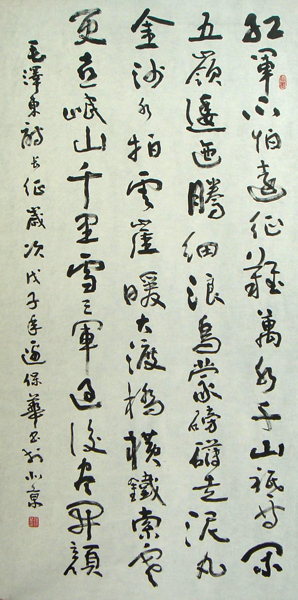 紅軍不怕遠征難萬水千山祇等閑
五嶺逶迤騰細浪烏蒙磅礴走泥丸
金沙水拍雲崖暖大渡橋橫鐵索寒
更喜岷山千里雪三軍過後盡開顏
毛澤東詩長征歲次戊子年保華書於北京